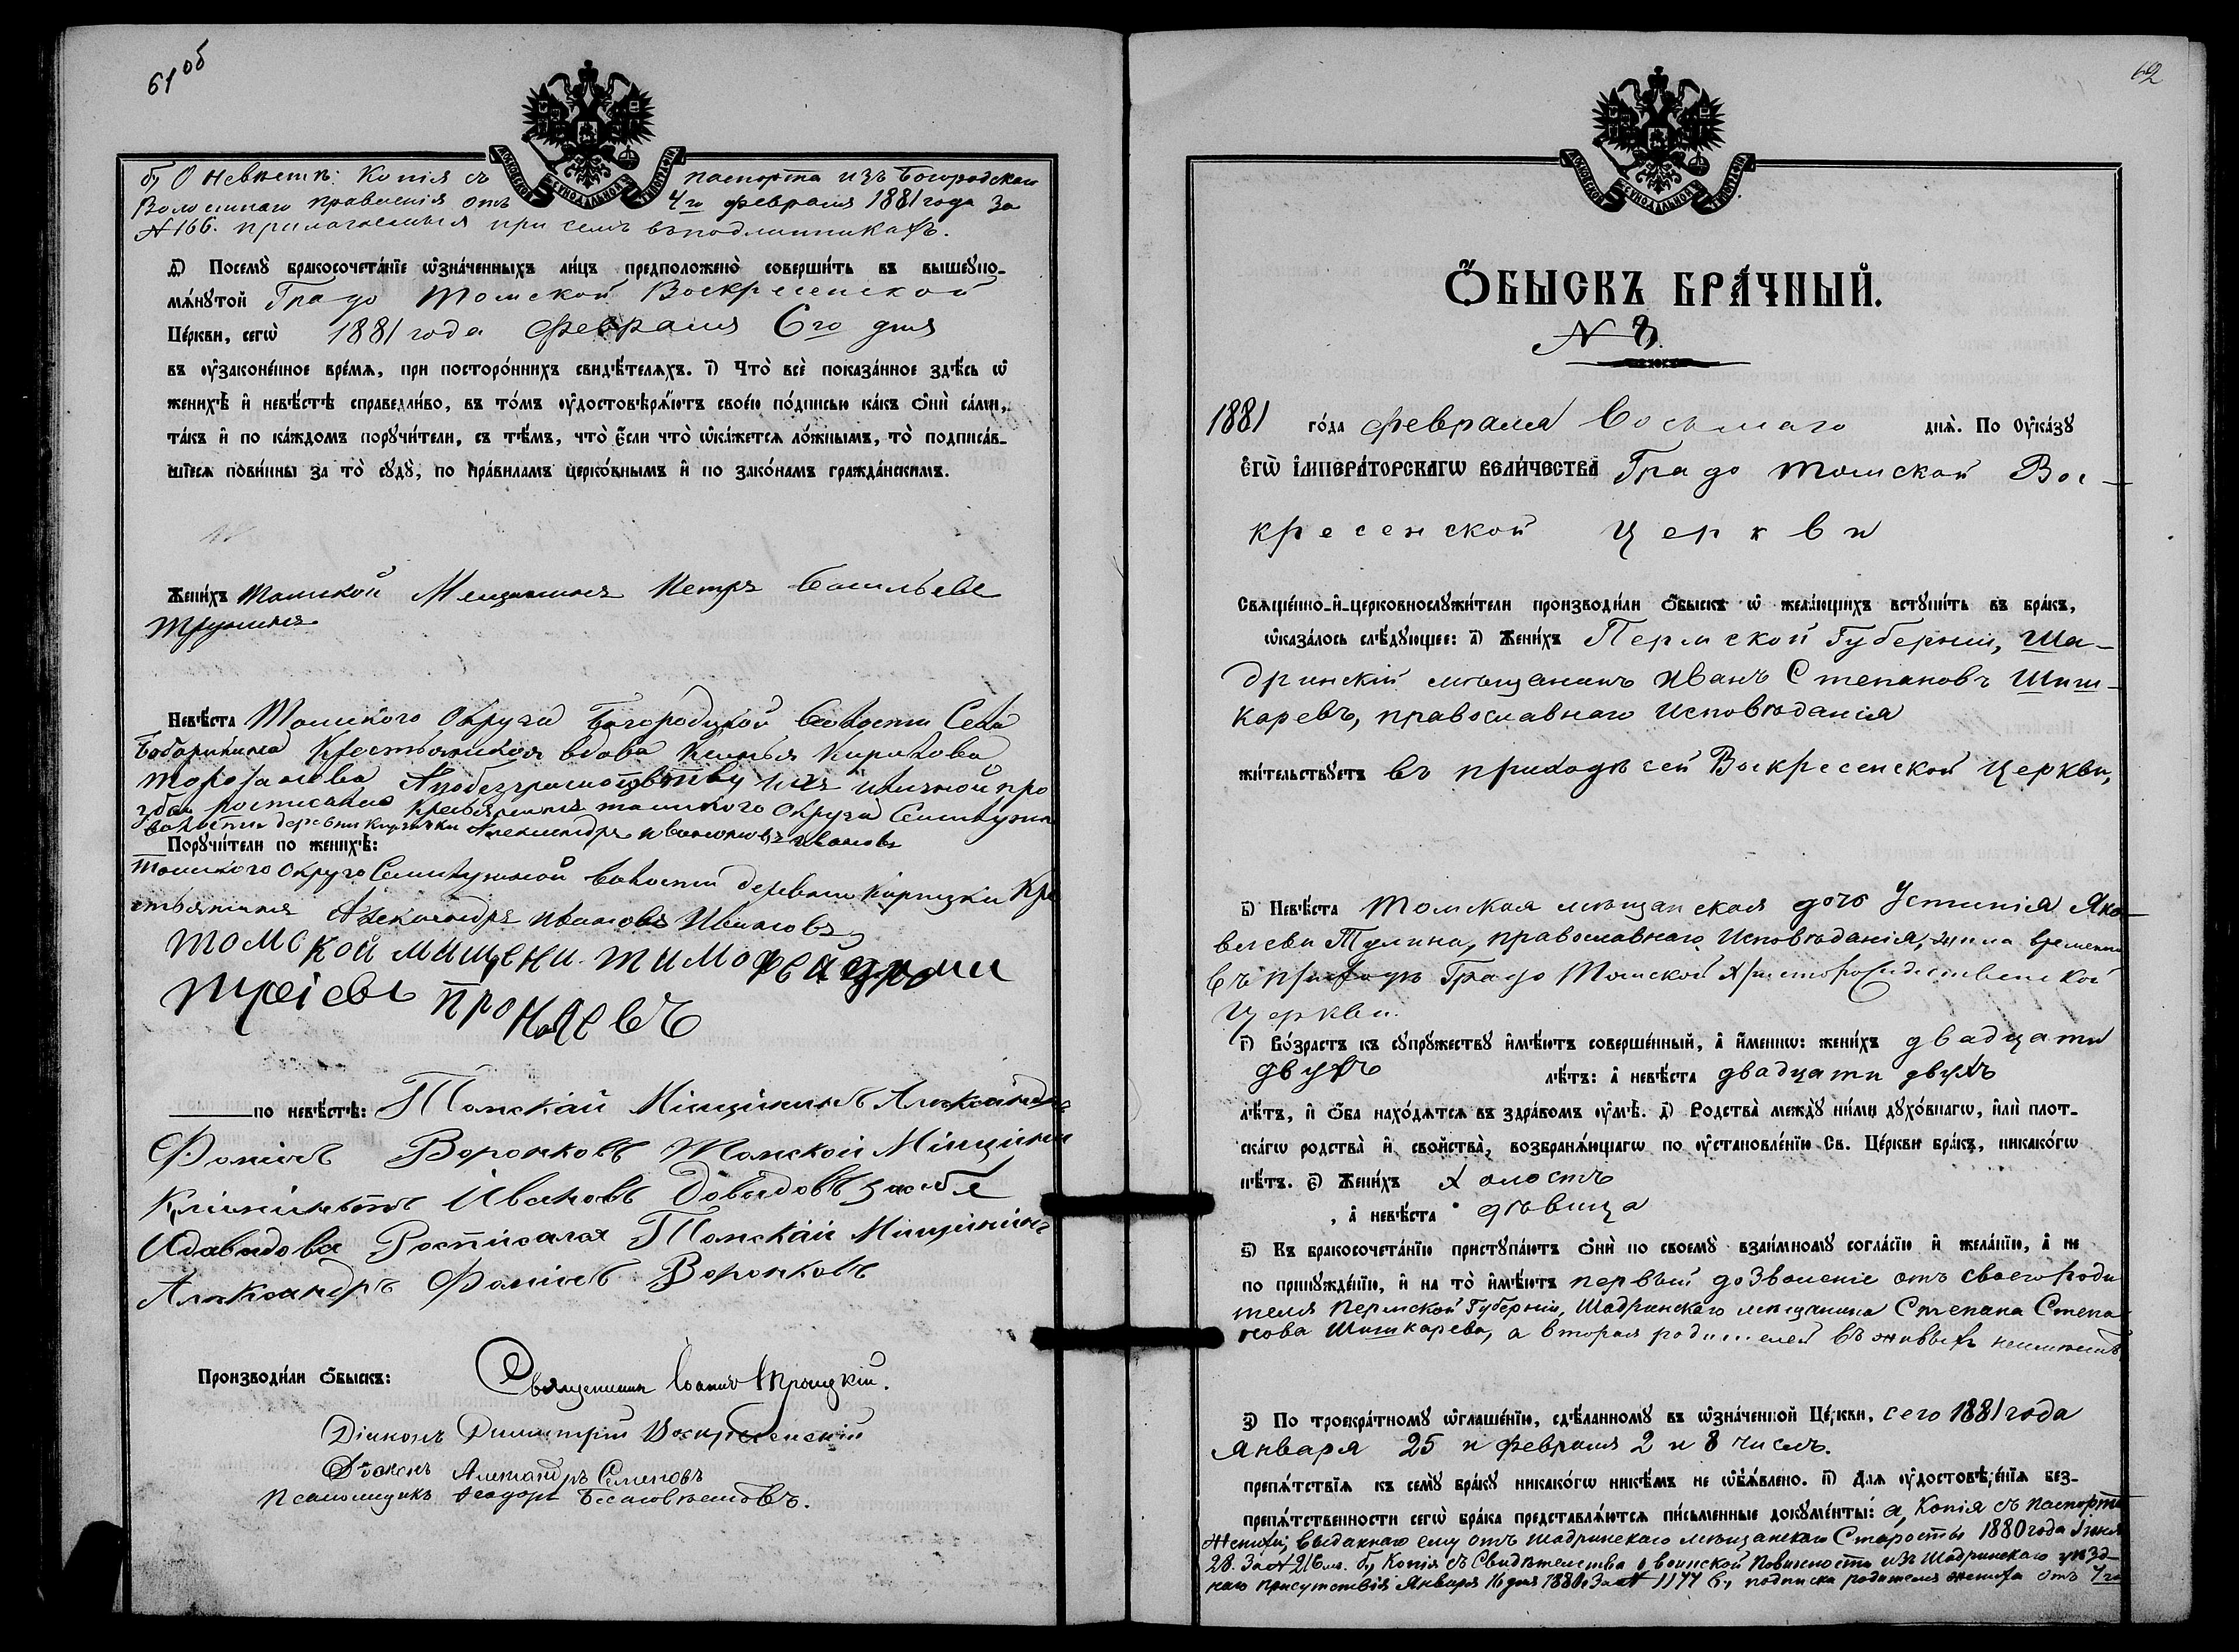 61 об
б, О невестѣ: Копія съ паспорта изъ Богородскаго
Волостнаго правленія отъ 4го февраля 1881 года за
№ 166. прилагаемыя при семъ въ подлинникахъ.
МОСКОВСКОЙ СѴНОДАЛЬНОЙ ТИПОГРАФІИ
д҃) Посемꙋ̀ бракосочета́нїе ѡ҆зна́ченныхъ ли́цъ предположено̀ соверши́ть въ вышеꙋпо-
мѧ́нꙋтой Градо Томской Воскресенской
Це́ркви, сегѡ̀ 1881 года февраля 6го дня
въ ᲂу҆законе́нное вре́мѧ, при посторо́ннихъ свидѣ́телѧхъ. і҃) Что̀ всѐ показа́нное здѣ́сь ѡ҆
женихѣ̀ и҆ невѣ́стѣ справедли́во, въ то́мъ ᲂу҆достовѣрѧ́ютъ свое́ю по́дписью ка́къ ѻ҆нѝ са́ми,
та́къ и҆ по ка́ждомъ порꙋчи́тели, съ тѣ́мъ, что̀ є҆́сли что̀ ѡ҆ка́жетсѧ ло́жнымъ, то̀ подписа́в-
шїесѧ пови́нны за то̀ сꙋдꙋ̀, по пра́виламъ церко́внымъ и҆ по зако́намъ гражда́нскимъ.
Жени́хъ Томской Мещанинъ Петръ Васильевъ
Трушинъ
Невѣ́ста Томского Округа Богородцкой волости Села
Бабарыкина Крестьянская вдова
росписался Крестьянинъ томского Округа
волости деревни Александръ Ивановъ Ивановъ
Порꙋчи́тели по женихѣ̀:
Томского Округа Семилужной волости деревни Киргизки Кре
стьянинъ Александръ Ивановъ Ивановъ
Томской мищени тимофей
Томскай Мищининъ Александръ
по невѣ́стѣ:
Фомичъ Воронковъ Томской Мищинин
Ивановъ Довыдовъ
Идавыдова Росписался Томскай Мищининъ
Александръ Фомичъ Воронковъ
Производи́ли ѻ҆́быскъ: Священникъ Іоаннъ Троицкій.
Діаконъ Димитрій Воскресенскій
Діаконъ Александръ Семеновъ
Псаломщикъ Ѳеодоръ
62
МОСКОВСКОЙ СѴНОДАЛЬНОЙ ТИПОГРАФІИ
Ѻ҆́БЫСКЪ БРА́ЧНЫЙ.
№ 8.
1881 го́да февраля восьмаго днѧ̀. По Оу҆ка́зꙋ
Є҆гѡ̀ И҆мпера́торскагѡ вели́чества Градо Томской Вос-
кресенской Церкви
Сващенно-и҆-церковнослꙋжи́тели производи́ли ѻ҆́быскъ ѡ҆ жела́ющихъ встꙋпи́ть въ бра́къ,
ѡ҆каза́лось слѣ́дꙋющее: а҃) Жени́хъ Пермской Губерніи, Ша-
дринскій мѣщанинъ Иванъ Степановъ Шиш-
каревъ, православнаго исповѣданія
жи́тельствꙋетъ въ приходѣ сей Воскресенской церкви,
в҃) Невѣ́ста Томская мѣщанская дочь Устинія Яко-
влева Тулина, православнаго исповѣданія, жила временно
въ приходѣ Градо Томской Христорождественской
Церкви.
г҃) Во́зрастъ къ сꙋпрꙋ́жествꙋ и҆мѣ́ютъ соверше́нный, а҆ и҆́менно: жени́хъ двадцати
двухъ лѣ́тъ: а҆ невѣ́ста двадцати двухъ
лѣ́тъ, и҆ ѻ҆́ба нахо́дѧтсѧ въ здра́вомъ ᲂу҆мѣ̀. д҃) Родства̀ междꙋ̀ ни́ми дꙋхо́внагѡ, и҆лѝ плот-
ска́гѡ родства̀ и҆ свойства̀, возбранѧ́ющагѡ по ᲂу҆становле́нїю Св. Це́ркви бра́къ, никако́гѡ
нѣ́тъ. є҃) Жени́хъ холостъ
, а҆ невѣ́ста дѣвица
ѕ҃) Къ бракосочета́нїю пристꙋпа́ютъ ѻ҆нѝ по своемꙋ̀ взаи́мномꙋ согла́сїю и҆ жела́нїю, а҆ не
по принꙋжде́нїю, и҆ на то̀ и҆мѣ́ютъ первый дозволеніе отъ своего роди
теля Пермской Губерніи, Шадринскаго мѣщанина Степана Степа
нова Шишкарева, а вторая родителей въ живыхъ неимѣетъ
з҃) По троекра́тномꙋ ѡ҆глаше́нїю, сдѣ́ланномꙋ въ ѡ҆зна́ченной Це́ркви, сего 1881 года
Января 25 и февраля 2 и 8 числъ.
препѧ́тствїѧ къ семꙋ̀ бра́кꙋ никако́гѡ никѣ́мъ не ѡ҆б̾ѧ́влено. и҃) Для ᲂу҆достовѣре́нїѧ без-
препѧ́тственности сегѡ̀ бра́ка представлѧ́ютсѧ пи́сьменные докꙋме́нты: а, Копія съ паспорта
Жениха, выданнаго ему отъ Шадринскаго мѣщанскаго Старосты 1880 года Іюня
28. За № 216м. б, Копія съ Свидѣтельства о воинской повинности изъ Шадринскаго уѣзд-
наго присутствія Января 16 дня 1880. За № 1177 в, подписка родителя жениха отъ 7го